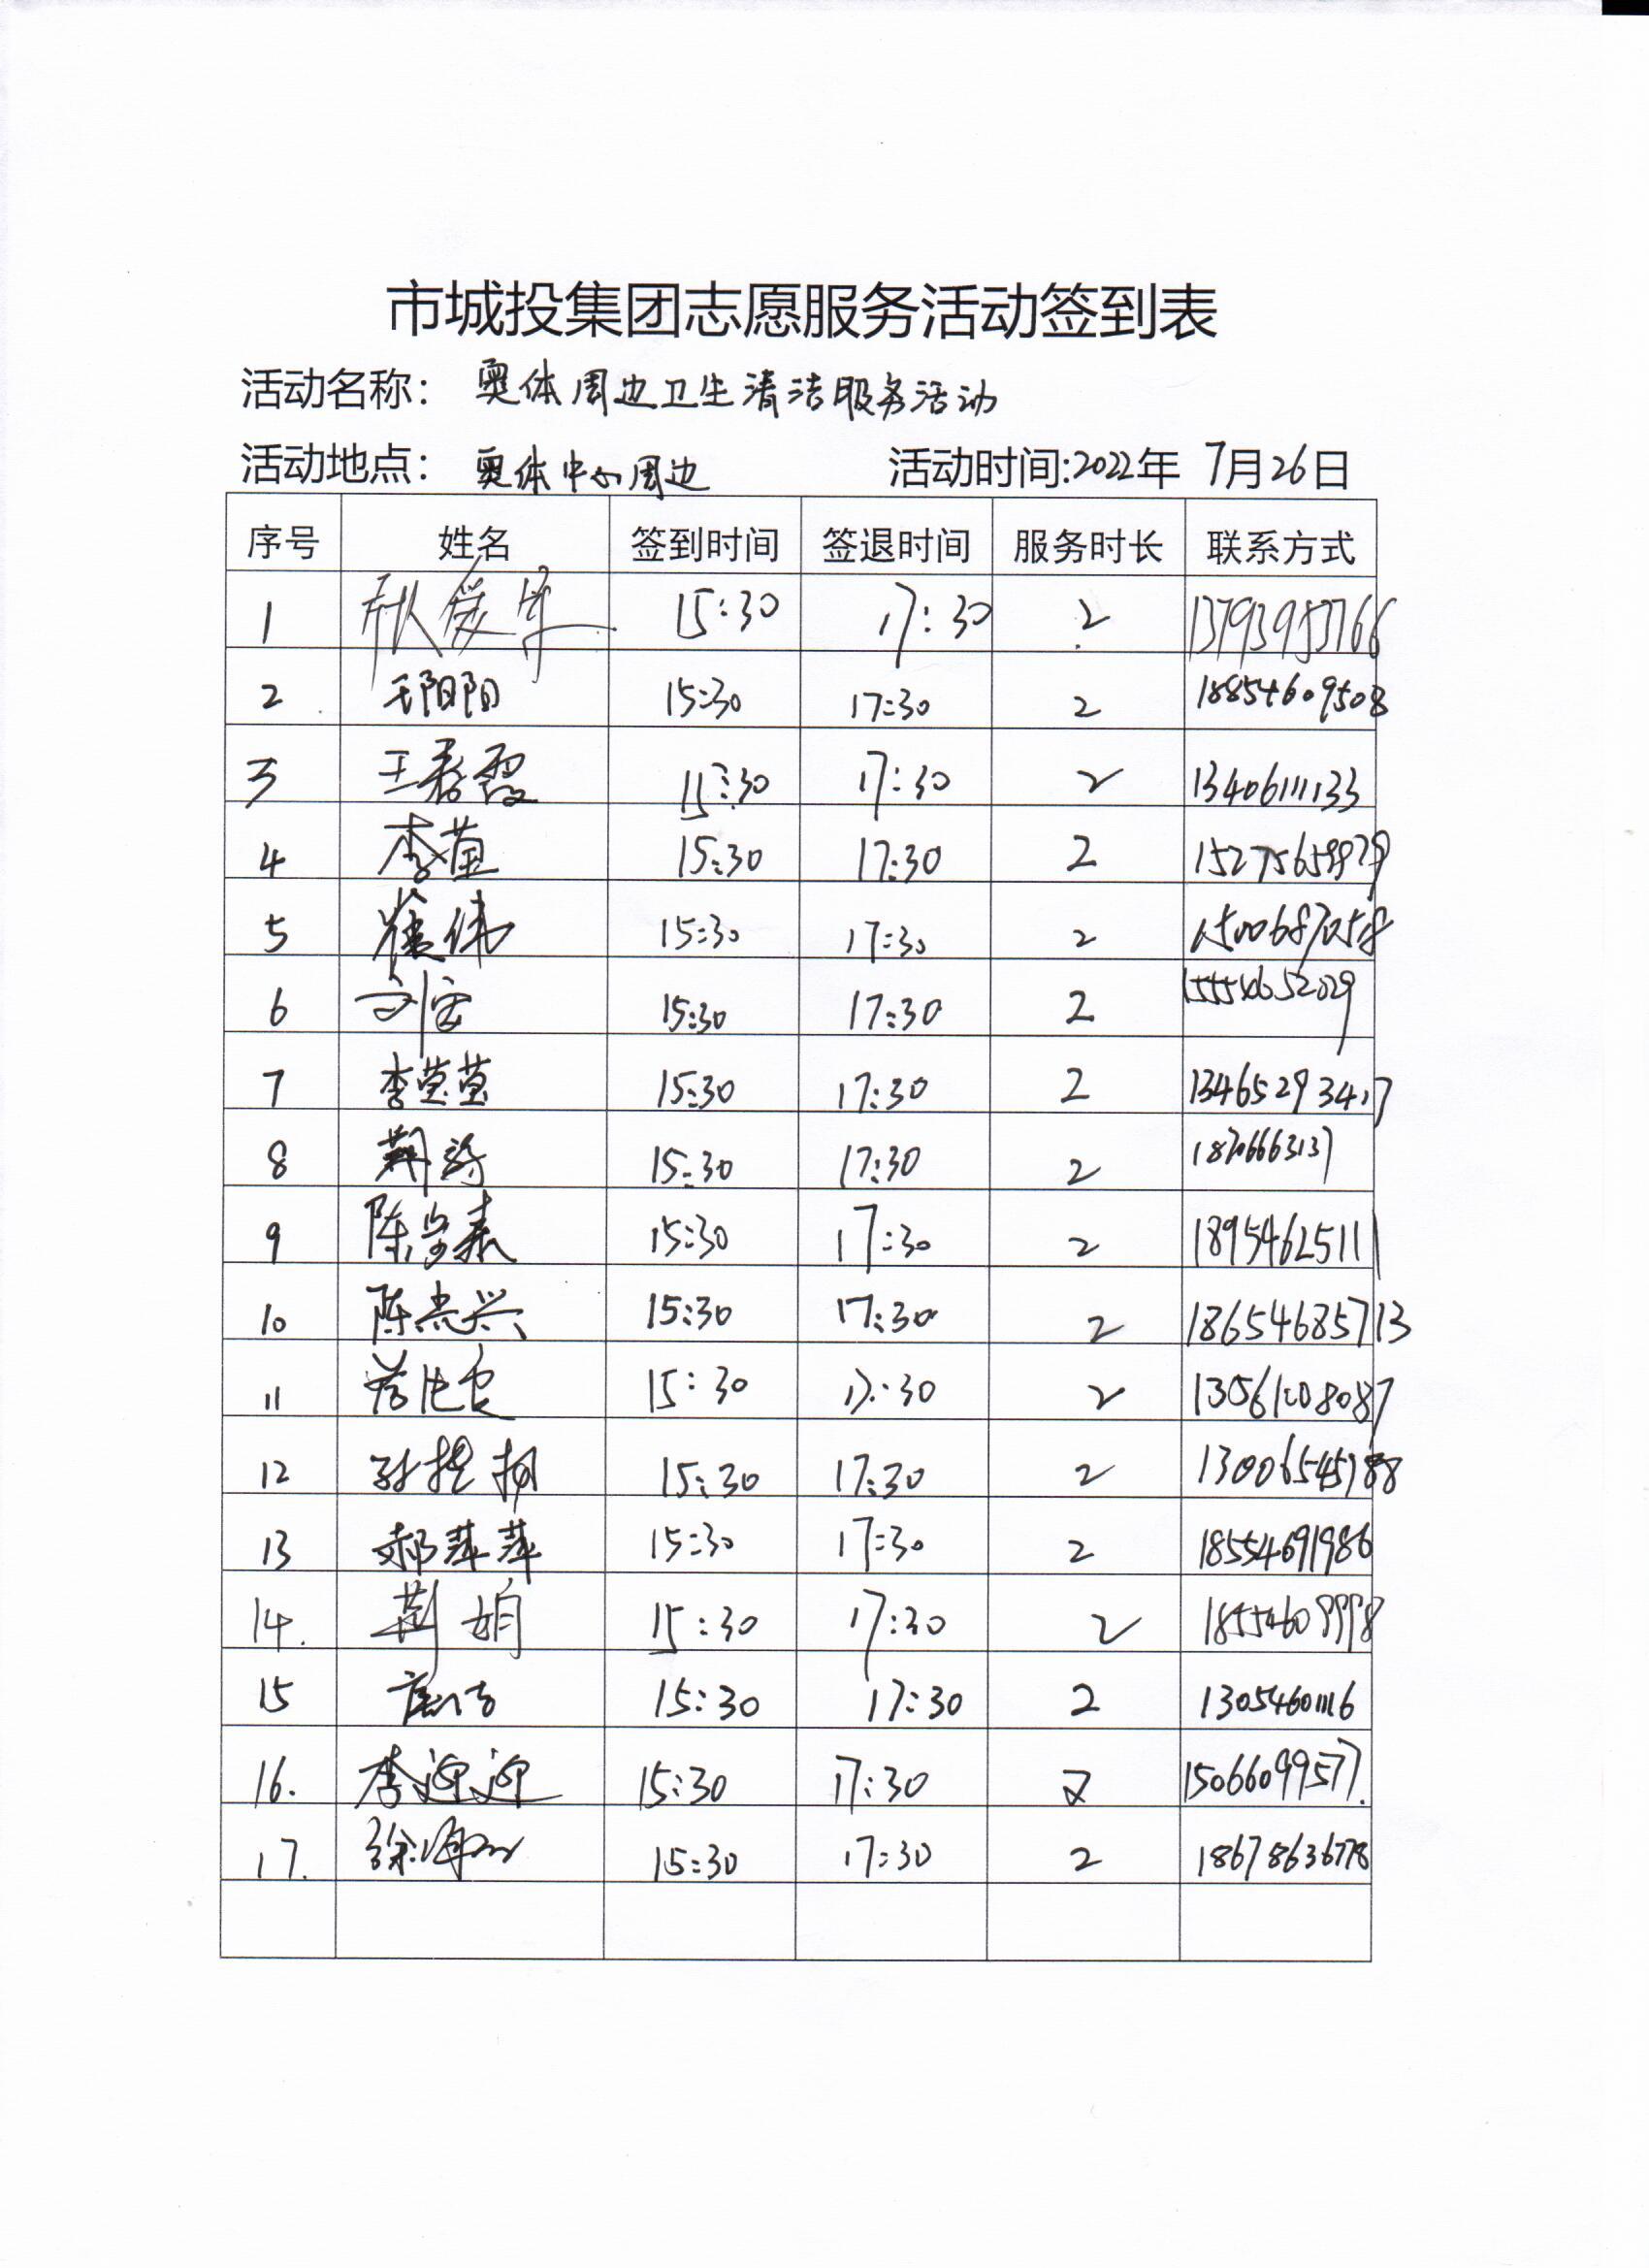 市城投集团志愿服务活动签到表
活动名称: 奥体周边卫生清洁服务活动
活动地点: 奥体中心周边 活动时间:2022年 7月26日
序号 姓名 签到时间 签退时间 服务时长 联系方式
1 15:30 17:30 2 13793953766
2 王阳阳 15:30 17:30 2 18854609508
3 王春霞 15:30 17:30 2 13406111133
4 李萱 15:30 17:30 2
5 崔伟 15:30 17:30 2 15006870518
6 15:30 17:30 2 15554652029
7 李莹莹 15:30 17:30 2 13465293417
8 15:30 17:30 2 18706663137
9 15:30 17:30 2 18954625111
10 15:30 17:30 2 18654685713
11 15:30 17:30 2 13561208087
12 15:30 17:30 2
13 郝萍萍 15:30 17:30 2 18554691986
14. 荆娟 15:30 17:30 2 18554609998
15 15:30 17:30 2 13054601116
16. 李迎迎 15:30 17:30 2 15066099577.
17. 15:30 17:30 2 18678636778